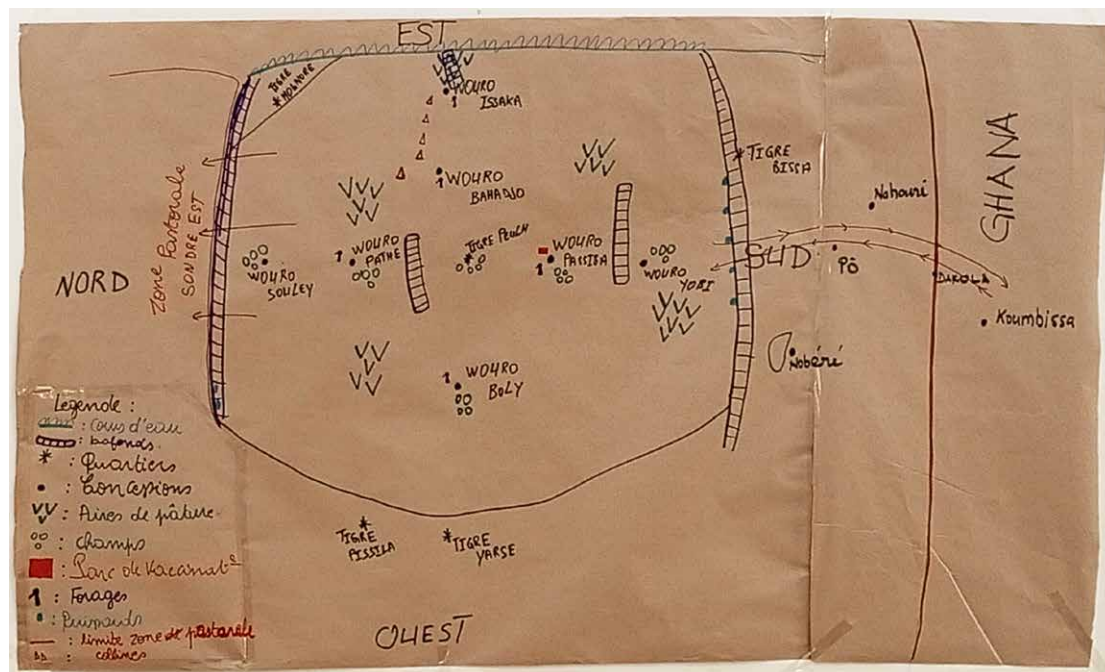 EST
TIGRE
* MOGNORE
WOURO
ISSAKA
1
* TIGRE
BISSA
WOURO
BAHADJO
1
GHANA
Nahouri
Zone Pastorale
SONDRE EST
NORD
WOURO
SOULEY
1
WOURO
PATHE
TIGRE PEULH
WOURO
PASSIBA
1
WOURO
YOBI
SUD
Pô
DAKOLA
Koumbissa
Nobéré
1
WOURO
BOLY
TIGRE
PISSILA
*TIGRE
YARSE
OUEST
Legende :
: Cours d'eau
: bafonds.
* : Quartiers
• : Concessions
: Aires de pâture
: champs
: Parc de Vaccinatº
1 : Forages
: limite zone de pastorale
: collines